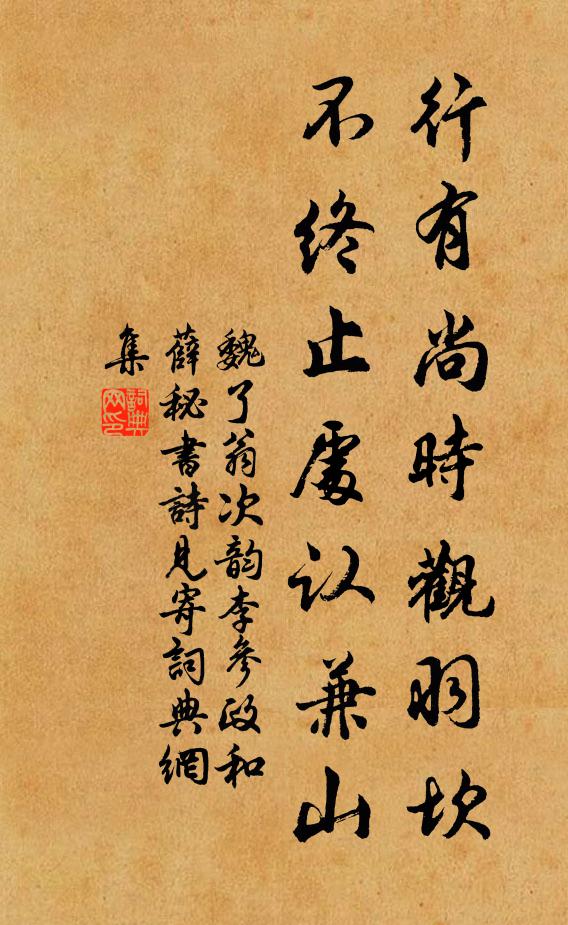 行有尚時觀羽坎
不終止處认兼山
魏了翁次韵李參政和
薛秘書詩見寄詞典網
集
詞典
网印